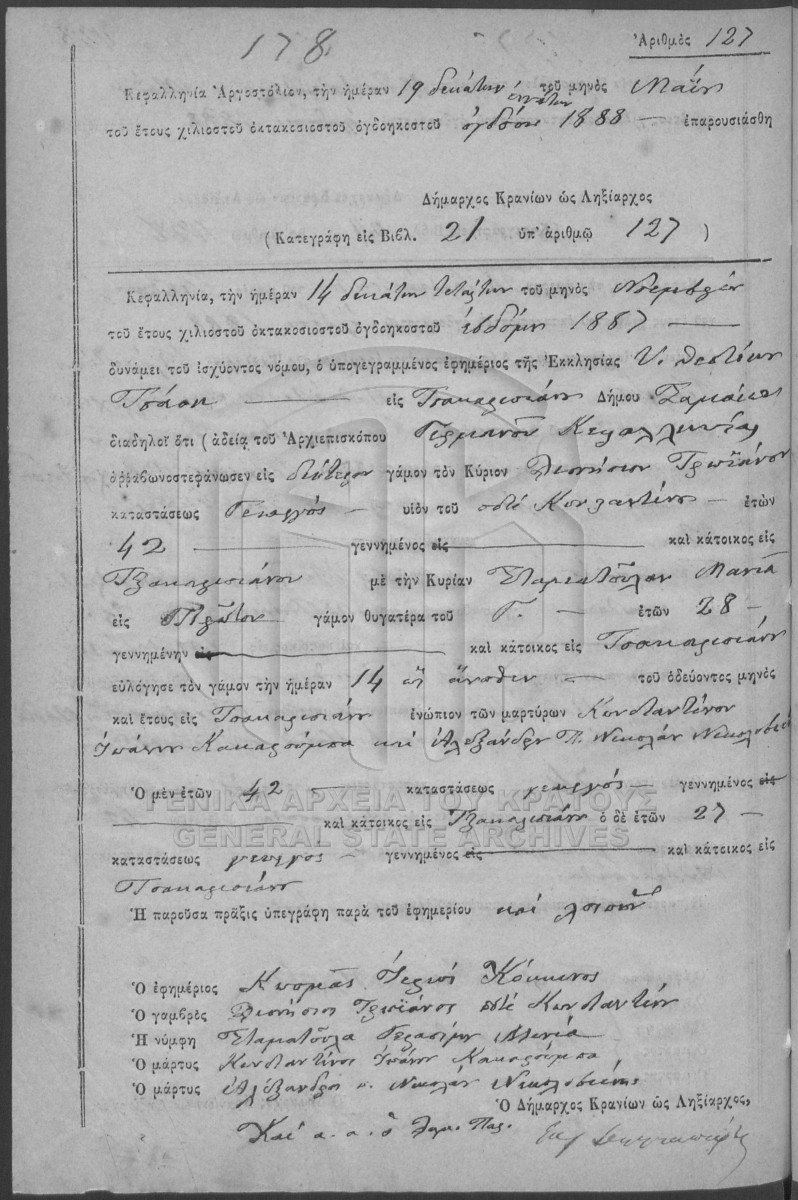 178
Ἀριθμὸς 127
Κεφαλληνία Ἀργοστόλιον, τὴν ἡμέραν 19 δεκάτην ἐννάτην τοῦ μηνὸς Μαΐου
τοῦ ἔτους χιλιοστοῦ ὀκτακοσιοστοῦ ὀγδοηκοστοῦ ὀγδόου 1888 — ἐπαρουσιάσθη
Δήμαρχος Κρανίων ὡς Ληξίαρχος
(Κατεγράφη εἰς Βιβλ. 21 ὑπ' ἀριθμῷ 127)
Κεφαλληνία, τὴν ἡμέραν 14 δεκάτην τετάρτην τοῦ μηνὸς Νοεμβρίου
τοῦ ἔτους χιλιοστοῦ ὀκτακοσιοστοῦ ὀγδοηκοστοῦ ἑβδόμου 1887 —
δυνάμει τοῦ ἰσχύοντος νόμου, ὁ ὑπογεγραμμένος ἐφημέριος τῆς Ἐκκλησίας
εἰς Τσακαρισιάνου Δήμου Σαμαίων
διαδηλοῖ ὅτι (ἀδείᾳ τοῦ Ἀρχιεπισκόπου Γερμανοῦ Κεφαλληνίας
ἀρραβωνοστεφάνωσεν εἰς δεύτερον γάμον τὸν Κύριον Διονήσιον
καταστάσεως Γεωργός — υἱὸν τοῦ ποτὲ Κωνσταντίνου — ἐτῶν
42 — γεννημένος εἰς — καὶ κάτοικος εἰς
Τζακαρισιάνου μὲ τὴν Κυρίαν Σταματοῦλαν
εἰς Πρῶτον γάμον θυγατέρα τοῦ Γ. — ἐτῶν 28 —
γεννημένην εἰς — καὶ κάτοικος εἰς Τσακαρισιάνου
εὐλόγησε τὸν γάμον τὴν ἡμέραν 14 ὡς ἄνωθεν — τοῦ ὁδεύοντος μηνὸς
καὶ ἔτους εἰς Τσακαρισιάνου ἐνώπιον τῶν μαρτύρων Κωνσταντίνου
Ἰωάννου Κακαρούμπα καὶ Ἀλεξάνδρου Π. Νικολάου
Ὁ μὲν ἐτῶν 42 — καταστάσεως γεωργός — γεννημένος εἰς
— καὶ κάτοικος εἰς Τζακαρισιάνου ὁ δὲ ἐτῶν 27 —
καταστάσεως γεωργος — γεννημένος εἰς — καὶ κάτοικος εἰς
Τσακαρισιάνου
Ἡ παροῦσα πρᾶξις ὑπεγράφη παρὰ τοῦ ἐφημερίου καὶ λοιπῶν
Ὁ ἐφημέριος Ἱερεὺς Κόκκινος
Ὁ γαμβρὸς Διονήσιος ποτὲ Κωνσταντίνου
Ἡ νύμφη Σταματοῦλα Γερασίμου
Ὁ μάρτυς Κωνσταντῖνος Ἰωάννου Κακαρούμπα
Ὁ μάρτυς Ἀλέξανδρος Νικολάου
Ὁ Δήμαρχος Κρανίων ὡς Ληξίαρχος,
ΓΕΝΙΚΑ ΑΡΧΕΙΑ ΤΟΥ ΚΡΑΤΟΥΣ
GENERAL STATE ARCHIVES